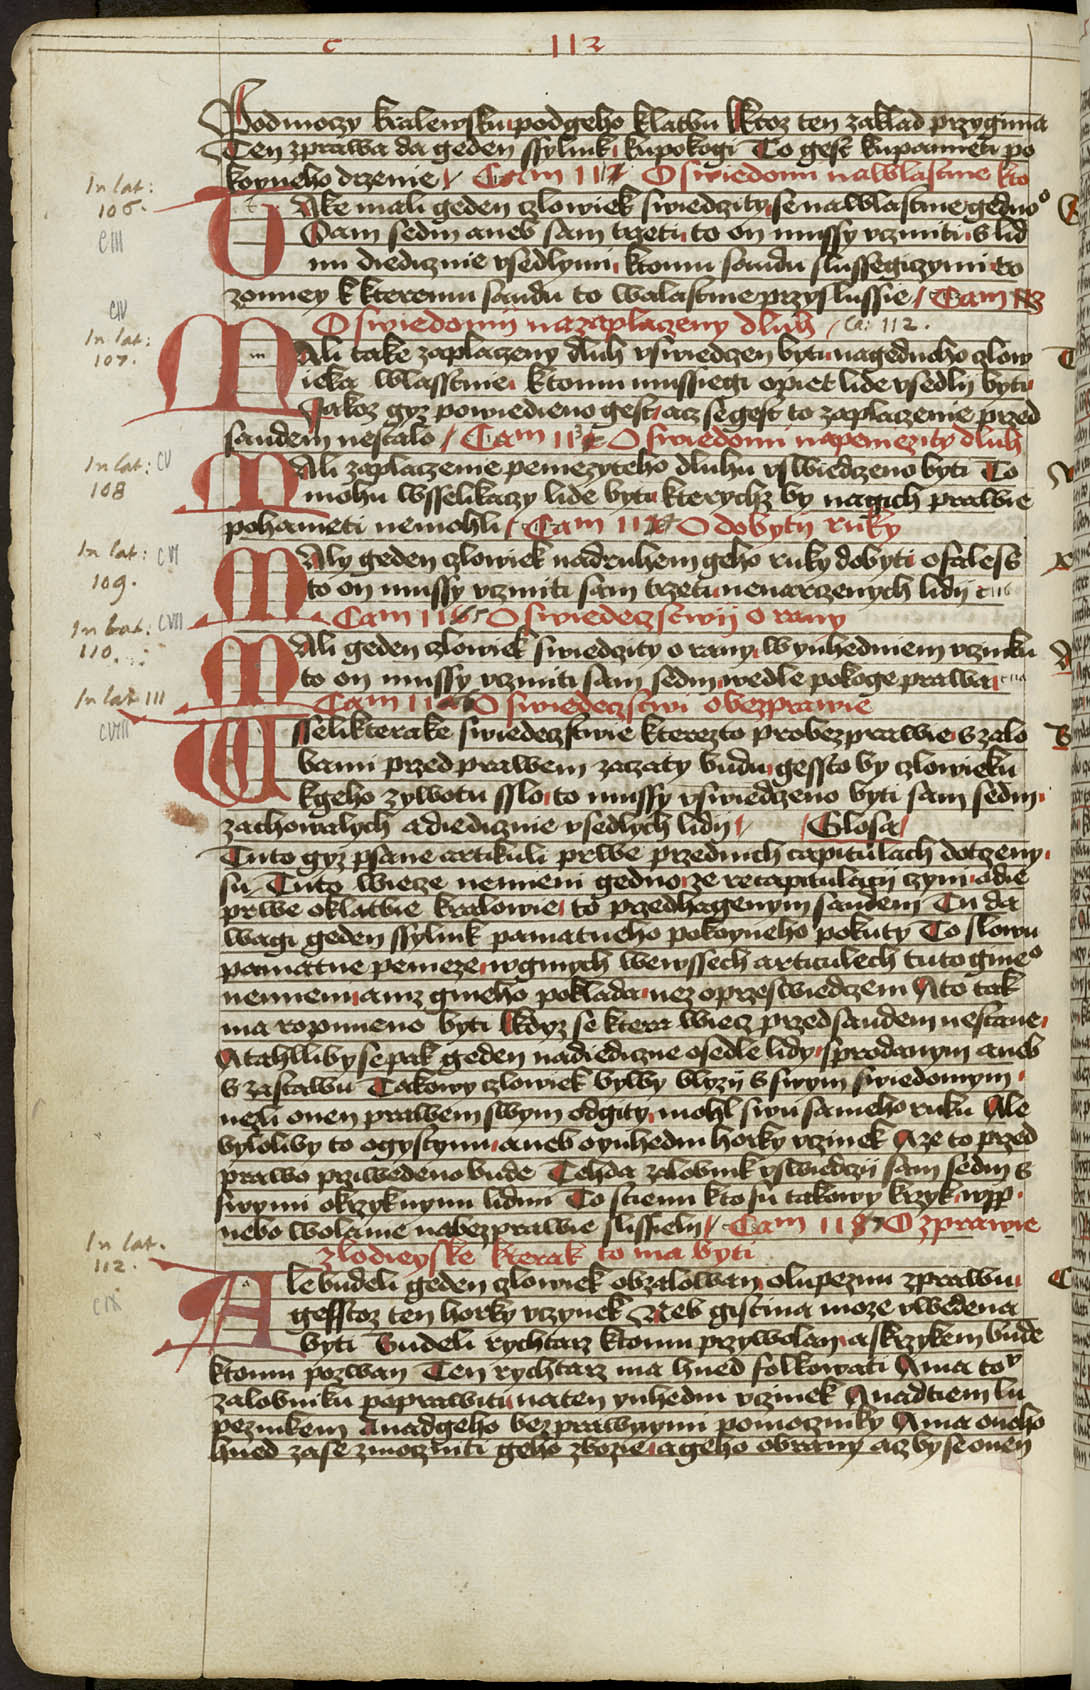 c 113
Podmoczy kralewsku podgeho klatbu Ktoz ten zaklad przygima
Ten zprawa da geden ssylink kupokogi To gest kupameti po
koyneho drzenie Cam 11 O swiedomi nawlastnie kto
In lat:
106.
CIII
Take mali geden czlowiek swiedczity se nawlastnie gedno
Tam sedm aneb sam trzeti to on mussy vcziniti s lid
mi diedicznie vsedlymi ktomu saudu slussegiczymi to
zonney k kteremu saudu to wlastnie przyslussie Cam
CIV
O swiedomij nazaplaczeny dluh Ca: 112.
In lat:
107.
Mali take zaplaczeny dluh vswiedczen byti nagednoho czlow
ieka wlasstnie ktomu mussiegi opiet lide vsedlij byti
Jakoz gyz powiedieno gest acz se gest to zaplaczenie przed
saudem nestalo Cam 11 O swiedomi napeniezity dluh
In lat: CV
108
Mali zaplaczenie peniezyteho dluhu vswiedczeno byti To
mohu wsselikaczy lide byti kterychz by nagich prawie
pohaneti nemohli Cam 11 O dobytij ruky
In lat: CVI
109.
Maly geden czlowiek nadruhem geho ruky dobyti o faless
to on mussy vcziniti sam trzeti nenarczenych lidij
Cam 116 O swiedeczstwij o rany
In lat: CVII
110.
Mali geden czlowiek swiedczity o rany w ynhedniem vczinku
to on mussy vcziniti sam sedm wedle pokoge prawa
In lat 111
Cam 11 O swiedeczstwi o bezprawie
CVIII
Wsselikterake swiedeczstwie kterezto pro bezprawie s zalo
bami przed prawem zaczaty budu gessto by czlowieku
k geho zywotu sslo to mussy vswiedczeno byti sam sedm
zachowalych a diedicznie vsedlych lidij Glosa
Tuto gyz psane artikuli prwe przednich capitulach dotczeny
su Tuto wiecze nenneni gedno ze recapitulagij czyni adie
prwe o klatbie kralowie to przedhagenym saudem Tu da
wagi geden ssylink pamatneho pokoyneho pokuty To slowu
pamatne penieze w gynych wewssech articulech tuto gine
nenneni aniz gineho poklada nez o przeswiedczeni A to tak
ma rozumieno byti Kdyz se ktera wiecz przed saudem nestane
A tahlliby se pak geden nadiediczne osedle lidy s prodanym aneb
s zastawu Takowy czlowiek bylby blyzij s swym swiedomym
nezli onen prawem swym odgity mohl swu sameho ruku Ale
byloliby to o gystczynu aneb o ynhedni horky vczinek A ze to przed
prawo prziwedeno bude Tehda zalobnik vswiedczij sam sedm s
swymi okrzyknymi lidmi To sciemi kto su takowy krzyk
nebo wolanie nabezprawie slisseli Cam 118 O zprawie
zlodieyske kterak to ma byti
In lat.
112.
CIX
Ale budeli geden czlowiek obzalowan o lupeznu zprawu
gessto z ten horky vczynek Neb gistina moze vwedena
byti Budeli rychtarz ktomu przywolan a skrzykem bude
ktomu pozwan Ten rychtarz ma hned folkowati A ma to
zalobniku poprawiti naten ynhedni vczinek A nadtiem lu
peznikem A nadgeho bezprawnymi pomoczniky A ma oneho
hned zase zmoczniti geho zbozie a geho obrany acz by se onen